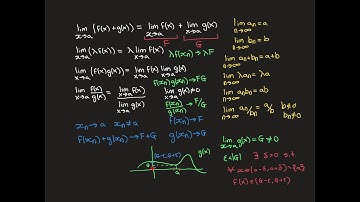 lim x→a (f(x)+g(x)) = lim x→a f(x) + lim x→a g(x)
F G
lim x→a (λf(x)) = λ lim x→a f(x) λf(xn) → λF
lim x→a (f(x)g(x)) = lim x→a f(x) lim x→a g(x)
f(xn)g(xn) → FG
lim x→a f(x)/g(x) = lim x→a f(x) / lim x→a g(x) lim x→a g(x) ≠ 0
f(xn)/g(xn) → F/G
xn → a xn ≠ a f(xn) → F
f(xn)+g(xn) → F+G g(xn) → G
(G-ε, G+ε) g(x)
a
lim n→∞ an = a
lim n→∞ bn = b
lim n→∞ an+bn = a+b
lim n→∞ λan = λa
lim n→∞ anbn = ab
lim n→∞ an/bn = a/b b≠0 bn≠0
lim x→a g(x) = G ≠ 0
ε<|G| ∃ δ>0 s.t
∀ x∈(a-δ, a+δ)\{a}
f(x) ∈ (G-ε, G+ε)